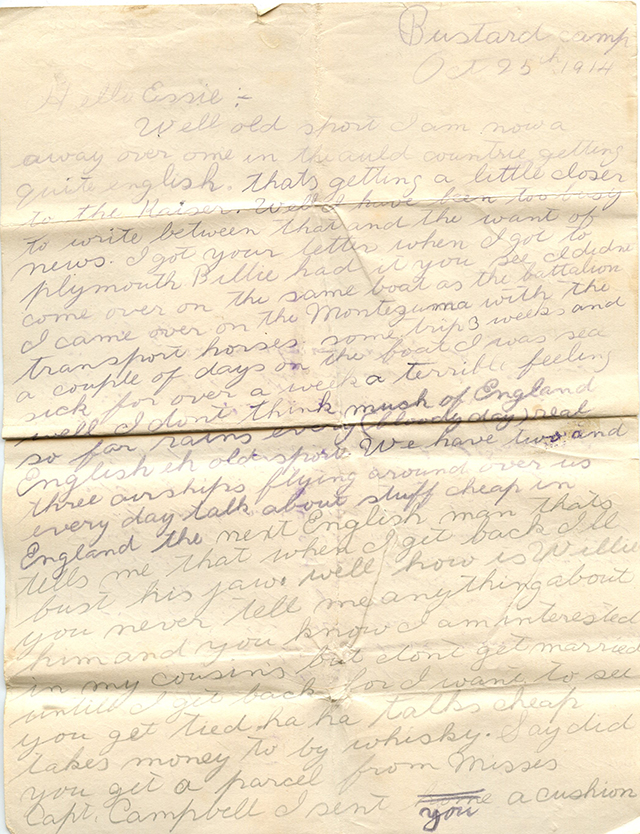 Bustard camp
Oct 25th 1914
Hello Essie :-
Well old sport I am now a
away over ome in the auld countrie getting
quite english. thats getting a little closer
to the Kaiser. Well I have been too busy
to write between that and the want of
news. I got your letter when I got to
plymouth Billie had it you see I didnt
come over on the same boat as the battalion
I came over on the Montezuma with the
transport horses some trip 3 weeks and
a couple of days on the boat I was sea
sick for over a week a terrible feeling
well I dont think much of England
so far rains every (bloody day) real
English eh old sport. We have two and
three airships flying around over us
every day talk about stuff cheap in
England the next English man thats
tells me that when I get back I'll
bust his jaw. well how is Willie
you never tell me anything about
him and you know I am interested
in my cousins, but dont get married
untill I get back for I want to see
you get tied. ha ha talks cheap
takes money to by whisky. Say did
you get a parcel from Misses
Capt. Campbell I sent a cushion
you